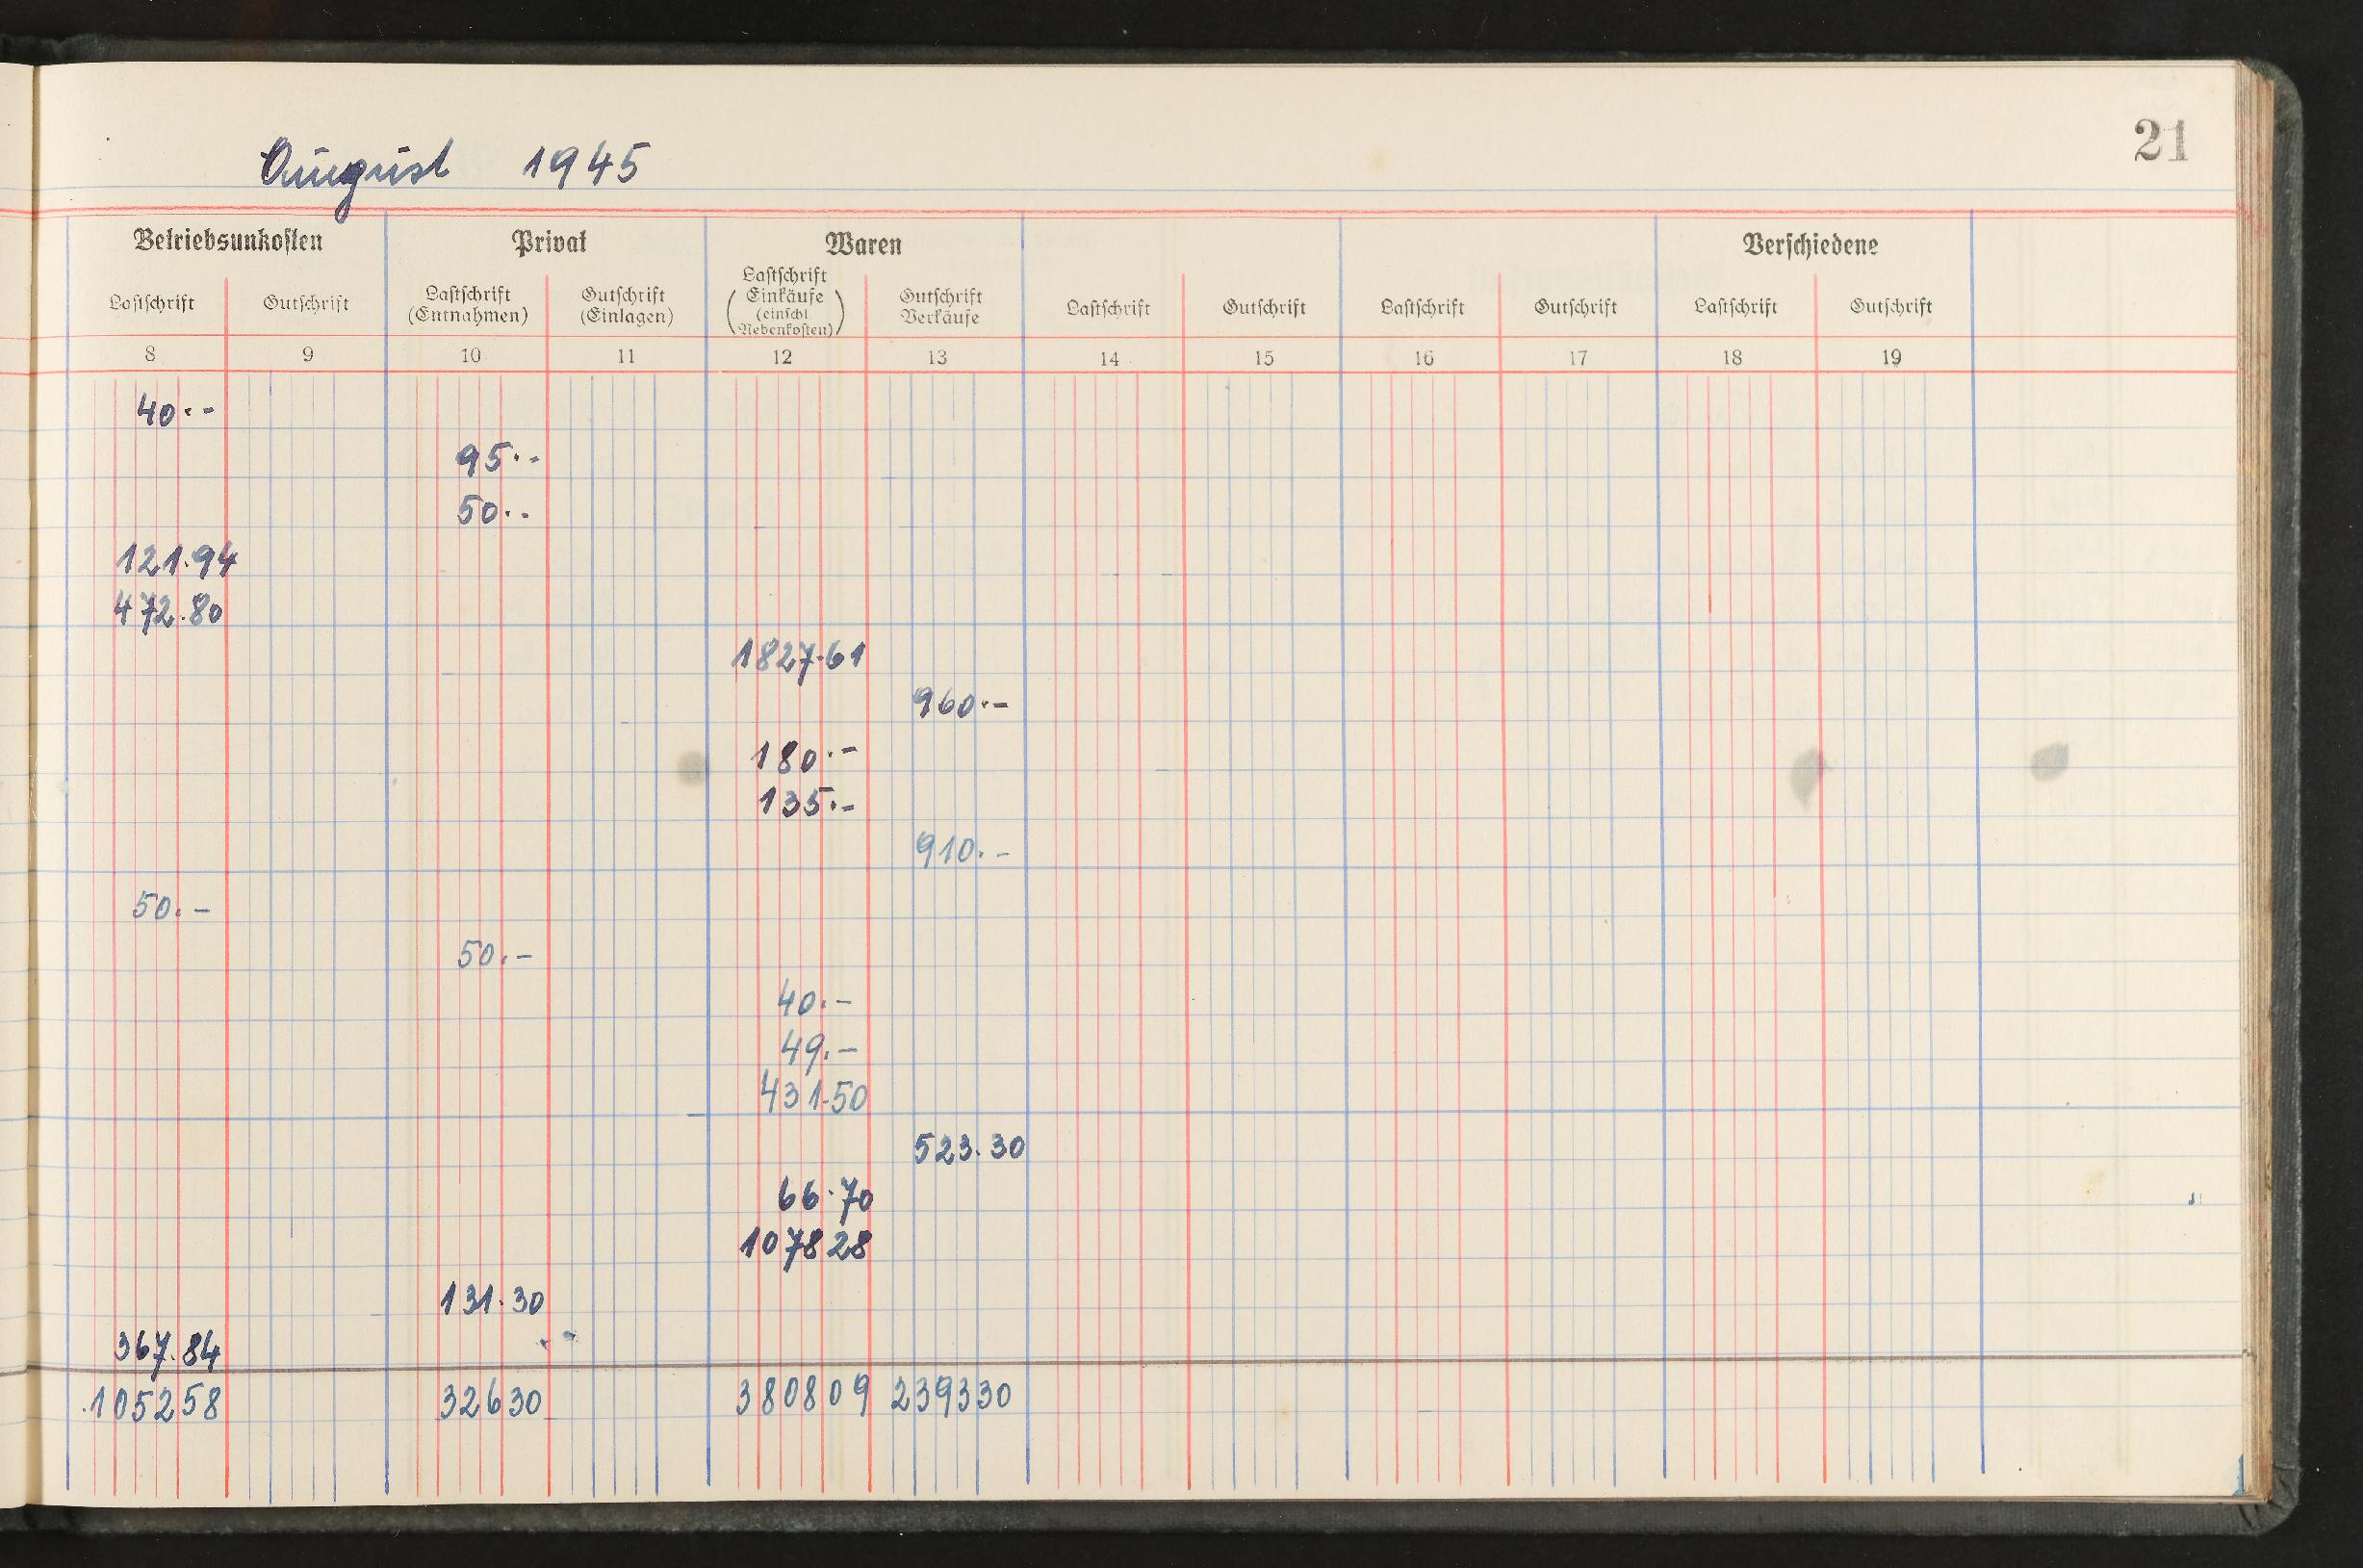 21
August 1945
Betriebsunkosten Privat Waren Verschiedene
Lastschrift Gutschrift Lastschrift (Entnahmen) Gutschrift (Einlagen) Lastschrift (Einkäufe (einschl Nebenkosten)) Gutschrift Verkäufe Lastschrift Gutschrift Lastschrift Gutschrift Lastschrift Gutschrift
8 9 10 11 12 13 14 15 16 17 18 19
40.-
95.-
50.-
121.94
472.80
1827.61
960.-
180.-
135.-
910.-
50.-
50.-
40.-
49.-
431.50
523.30
66.70
1078 28
131.30
367.84
1052 58 326 30 3808 09 2393 30